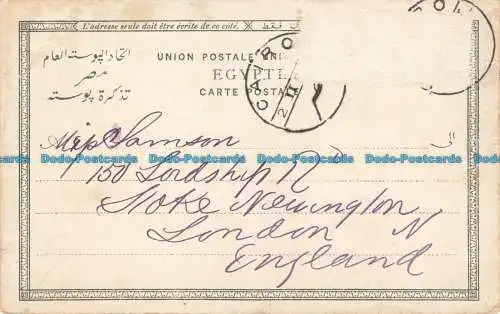 L'adresse seule doit être écrite de ce coté.
UNION POSTALE UNI
EGYPTE
CARTE POSTA
اتحاد البوستة العام
مصر
تذكرة بوسته
CAIRO
CAIRO
2 II
الى
Miss Samson
150 Lordship Rd
Stoke Newington
London N
England
Dodo-Postcards Dodo-Postcards Dodo-Postcards Dodo-Postcards